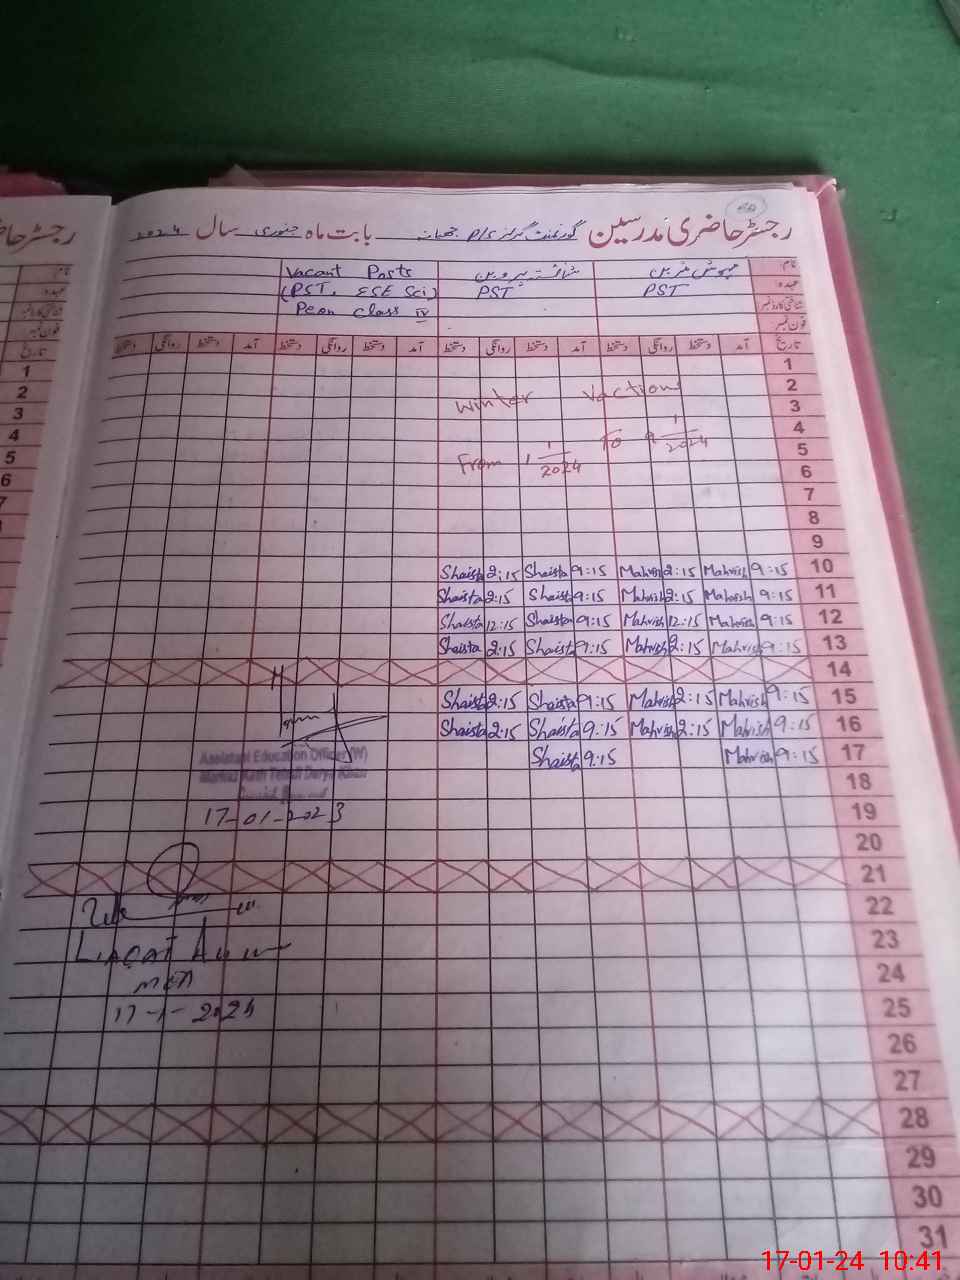 رجسٹر حاضری مدرسین گورنمنٹ گرلز P/S بابت ماہ جنوری سال 2024
نام مہوش شائستہ پروین Vacant Posts
عہدہ PST PST (PST, ESE Sci)
شناختی کارڈ نمبر Peon Class IV
فون نمبر
تاریخ آمد دستخط روانگی دستخط آمد دستخط روانگی دستخط آمد دستخط روانگی دستخط آمد دستخط روانگی دستخط
1
2
Winter Vaction
3
4
From 1 1/2024 To 9 1/2024
5
6
7
8
9
Shaista 2:15 Shaista 9:15 Mahvish 2:15 Mahvish 9:15 10
Shaista 2:15 Shaista 9:15 Mahvish 2:15 Mahvish 9:15 11
Shaista 12:15 Shaista 9:15 Mahvish 12:15 Mahvish 9:15 12
Shaista 2:15 Shaista 9:15 Mahvish 2:15 Mahvish 9:15 13
14
Shaista 2:15 Shaista 9:15 Mahvish 2:15 Mahvish 9:15 15
Shaista 2:15 Shaista 9:15 Mahvish 2:15 Mahvish 9:15 16
Shaista 9:15 Mahvish 9:15 17
Assistant Education Officer (W)
Markaz Tehsil Darya Khan
18
17-01-2023 19
20
21
22
23
24
17-1-2024 25
26
27
28
29
30
31
رجسٹر حاضری
نام
عہدہ
شناختی کارڈ نمبر
فون نمبر
تاریخ
1
2
3
4
5
6
7
17-01-24 10:41